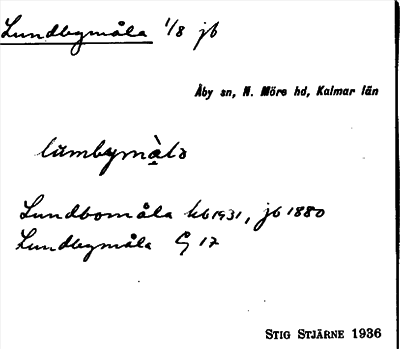 Lundbymåla 1/8 jb
Åby sn, N. Möre hd, Kalmar län
lu̇mbymà̱lə
Lundbomåla kb 1931, jb 1880
Lundbymåla G 17
STIG STJÄRNE 1936